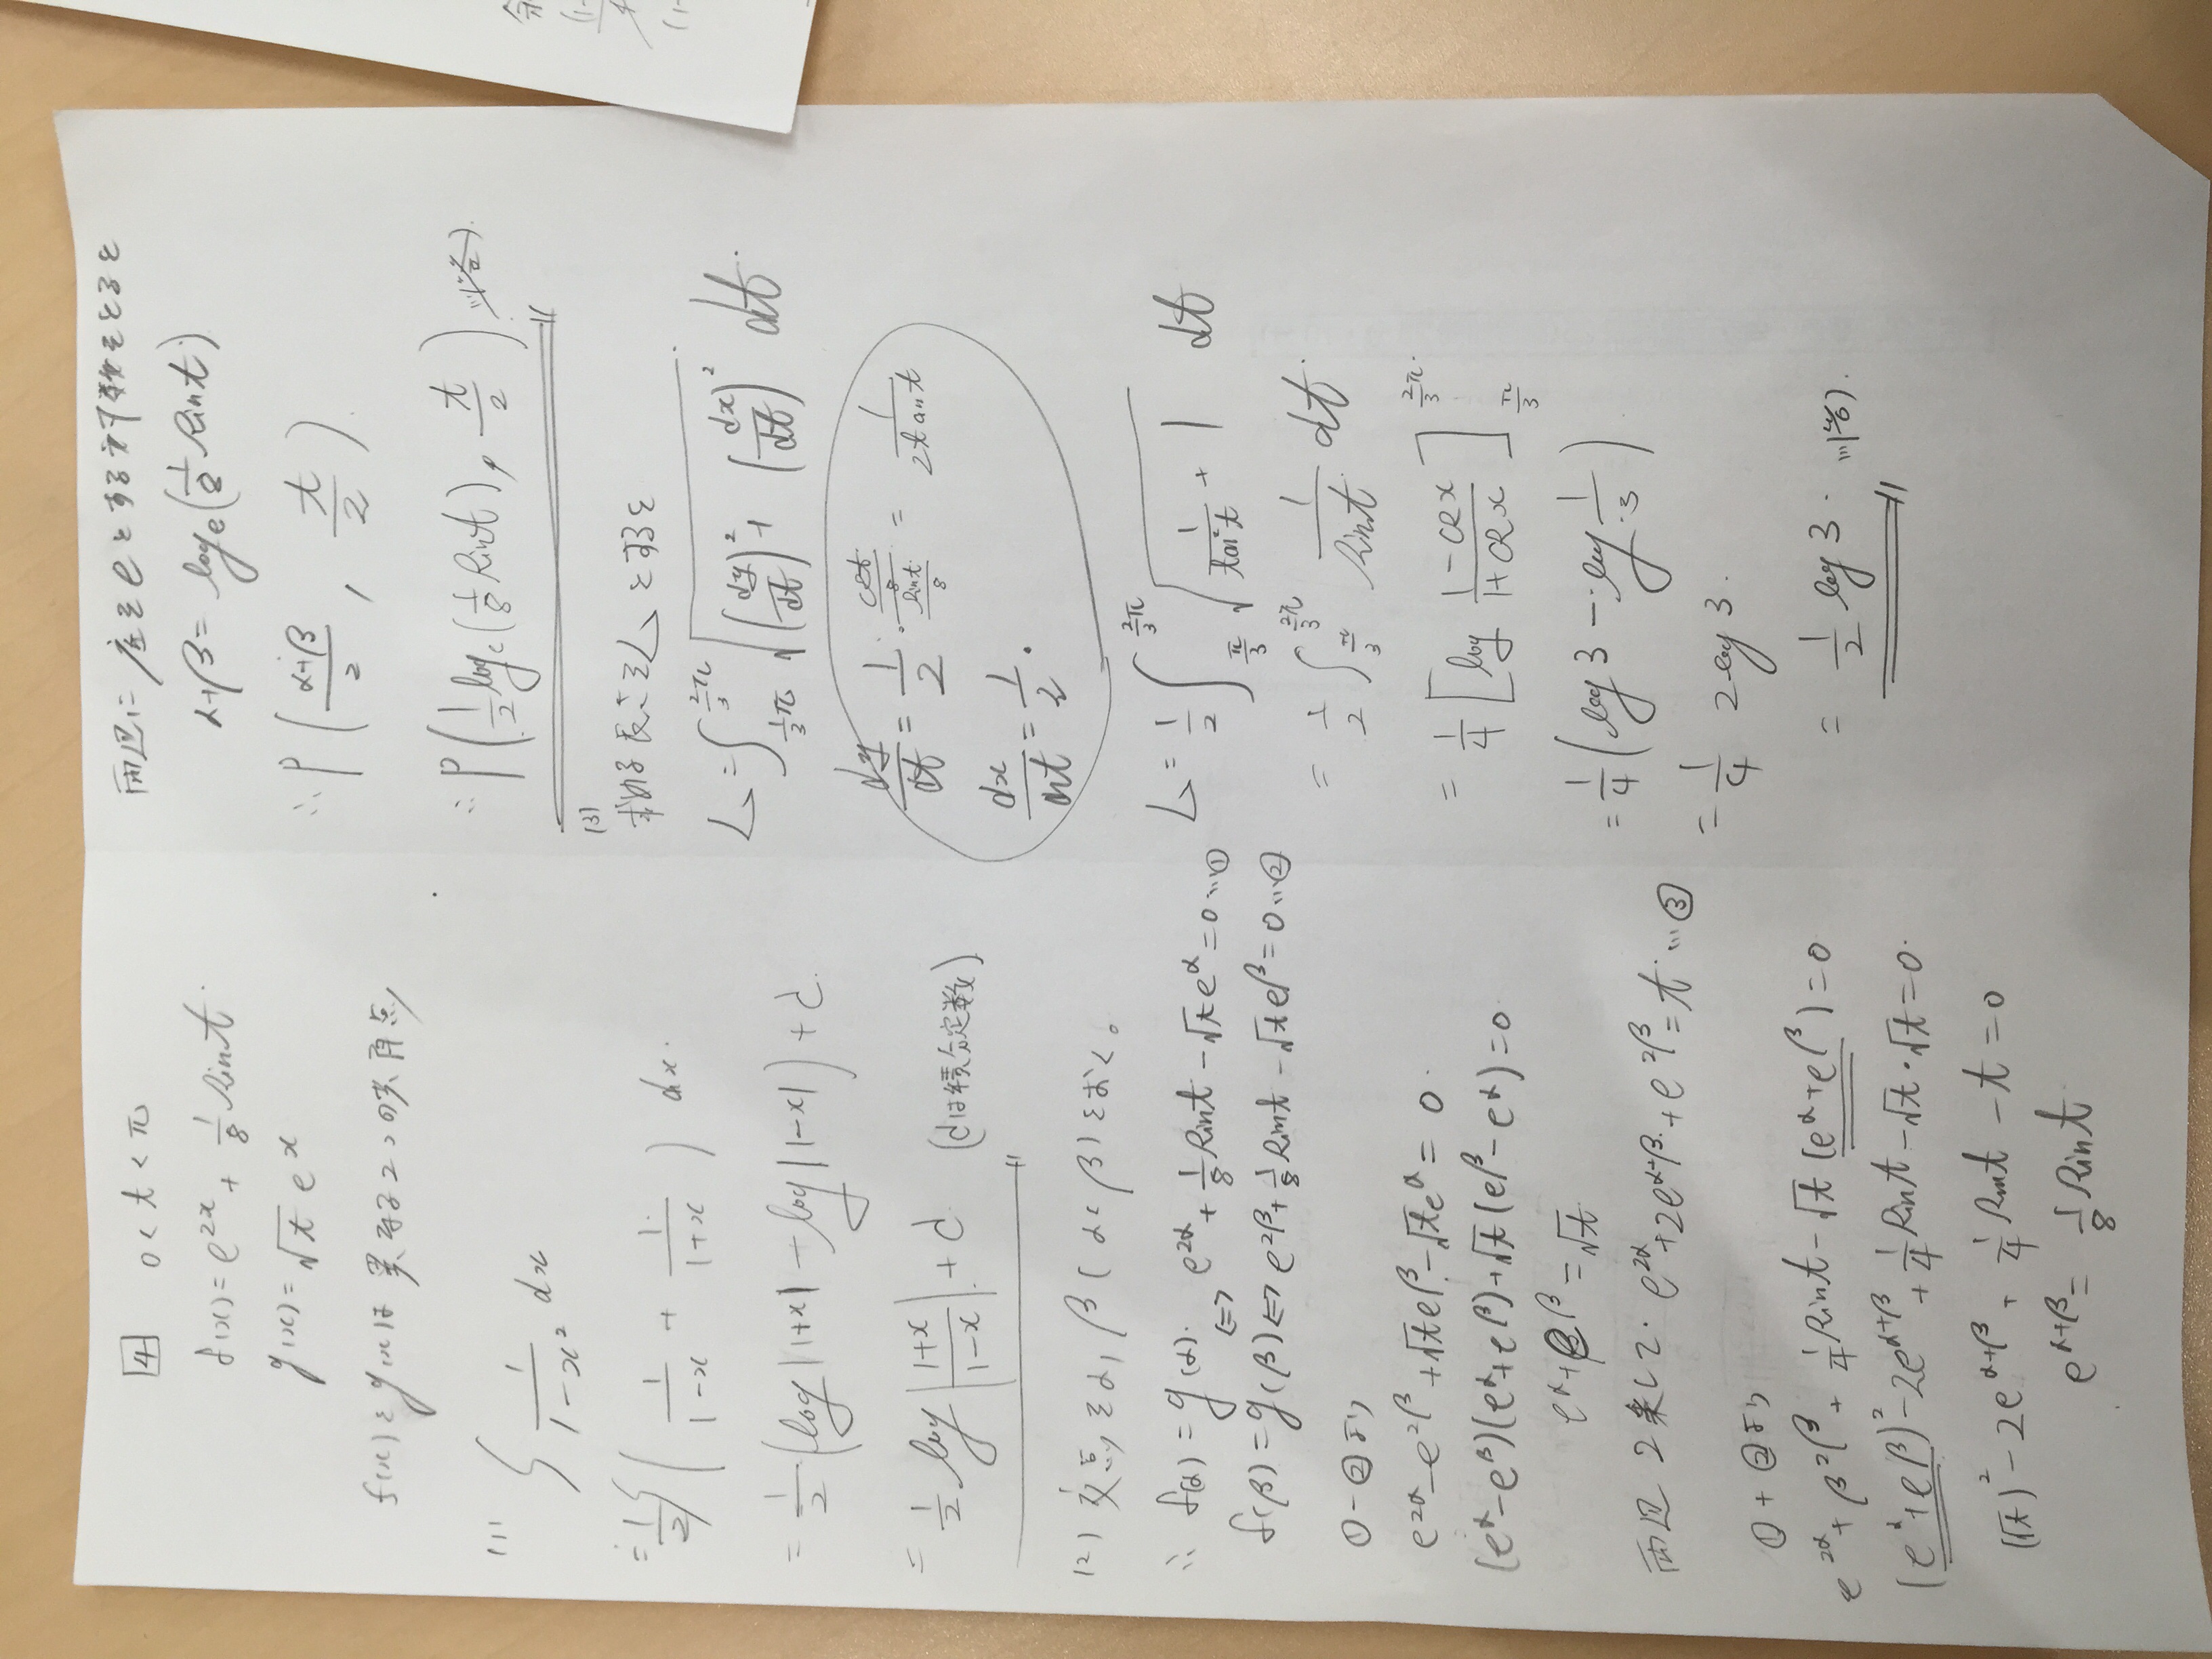 4 0<t<π
f(x)=e^{2x}+\frac{1}{8}sint.
g(x)=√t e^x
f(x)とg(x)は異なる2つの共有点
(1) ∫\frac{1}{1-x^2}dx
=\frac{1}{2}∫(\frac{1}{1-x}+\frac{1}{1+x})dx.
=\frac{1}{2}(log|1+x|-log|1-x|)+C.
=\frac{1}{2}log|\frac{1+x}{1-x}|+C (Cは積分定数)
(2) 交点をα, β(α<β)とおく。
∴ f(α)=g(α). ⇔ e^{2α}+\frac{1}{8}sint-√t e^α=0…①
f(β)=g(β) ⇔ e^{2β}+\frac{1}{8}sint-√t e^β=0…②
①-②より
e^{2α}-e^{2β}+√t e^β-√t e^α=0.
(e^α-e^β)(e^α+e^β)+√t(e^β-e^α)=0
e^α+e^β=√t
両辺2乗して. e^{2α}+2e^{α+β}+e^{2β}=t.…③
①+②より
e^{2α}+β^{2β}+\frac{1}{4}sint-√t(e^α+e^β)=0
(e^α+e^β)^2-2e^{α+β}+\frac{1}{4}sint-√t・√t=0.
(√t)^2-2e^{α+β}+\frac{1}{4}sint-t=0
e^{α+β}=\frac{1}{8}sint
両辺に底をeとする対数をとると
α+β=log_e(\frac{1}{8}sint)
∴P(\frac{α+β}{2}, \frac{t}{2}).
∴P(\frac{1}{2}log_e(\frac{1}{8}sint), \frac{t}{2})…(答)
(3)
求める長さをLとすると
L=∫_{\frac{1}{3}π}^{\frac{2}{3}π}√((\frac{dy}{dt})^2+(\frac{dx}{dt})^2) dt.
\frac{dy}{dt}=\frac{1}{2}・\frac{\frac{cost}{8}}{\frac{sint}{8}}=\frac{1}{2tant}
\frac{dx}{dt}=\frac{1}{2}.
L=\frac{1}{2}∫_{\frac{π}{3}}^{\frac{2}{3}π}√(\frac{1}{tan^2t}+1) dt
=\frac{1}{2}∫_{\frac{π}{3}}^{\frac{2}{3}π}\frac{1}{sint}dt.
=\frac{1}{4}[log\frac{1-cosx}{1+cosx}]_{\frac{π}{3}}^{\frac{2}{3}π}.
=\frac{1}{4}(log3-log\frac{1}{3})
=\frac{1}{4}2log3.
=\frac{1}{2}log3.…(答).